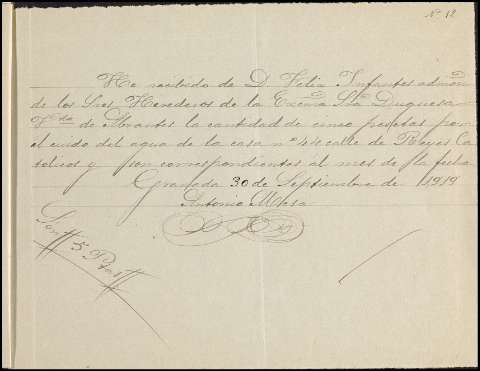 Nº 12
He recibido de D. Felix Infantes admon
de los Sres Herederos de la Excma Sra Duquesa
Vda de Abrantes la cantidad de cinco pesetas por
el cuido del agua de la casa nº 44 calle de Reyes Ca
tolicos y son correspondientes al mes de la fecha
Granada 30 de Septiembre de 1919
Antonio Mesa
Son 5 Ptas